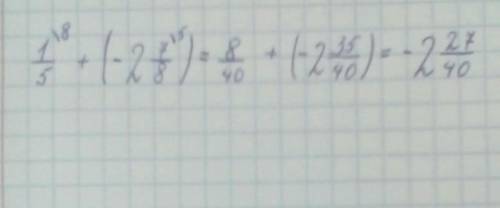 1/5 \8 + (-2 7/8 \5) = 8/40 + (-2 35/40) = -2 27/40